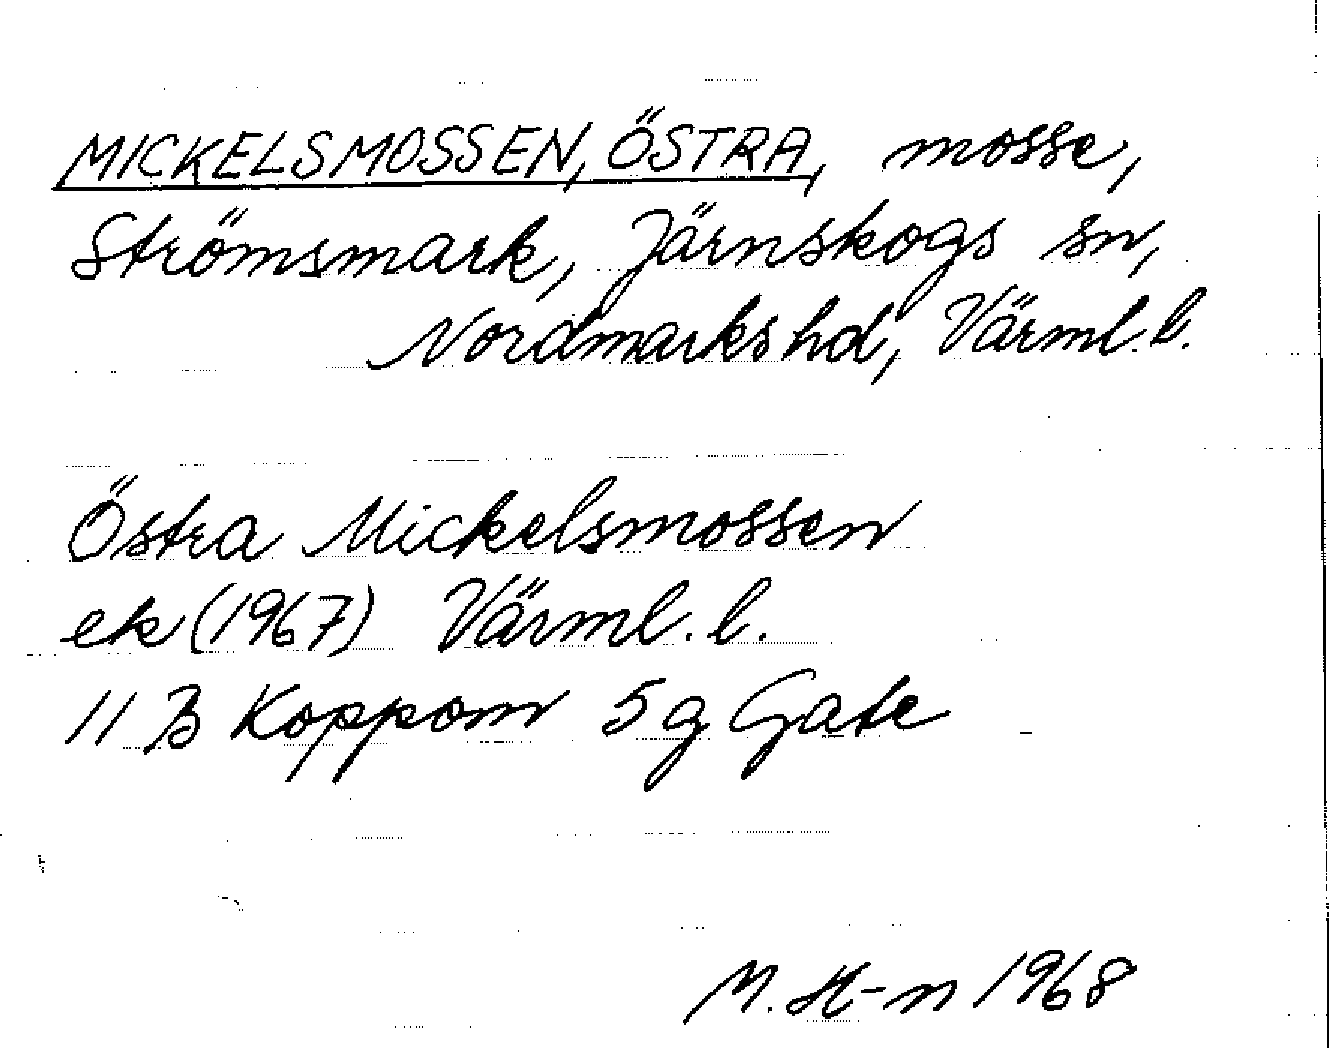 MICKELSMOSSEN, ÖSTRA, mosse,
Strömsmark, Järnskogs sn,
Nordmarks hd, Värml. l.
Östra Mickelsmossen
ek (1967) Värml. l.
11 B Koppom 5 g Gate
M. H-n 1968